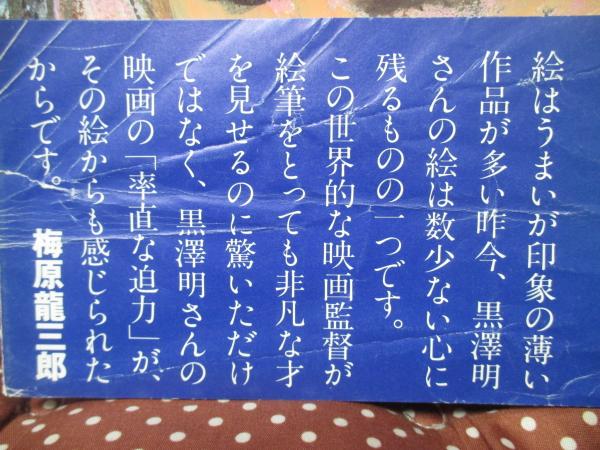 絵はうまいが印象の薄い
作品が多い昨今、黒澤明
さんの絵は数少ない心に
残るものの一つです。
この世界的な映画監督が
絵筆をとっても非凡な才
を見せるのに驚いただけ
ではなく、黒澤明さんの
映画の「率直な迫力」が、
その絵からも感じられた
からです。
梅原龍三郎